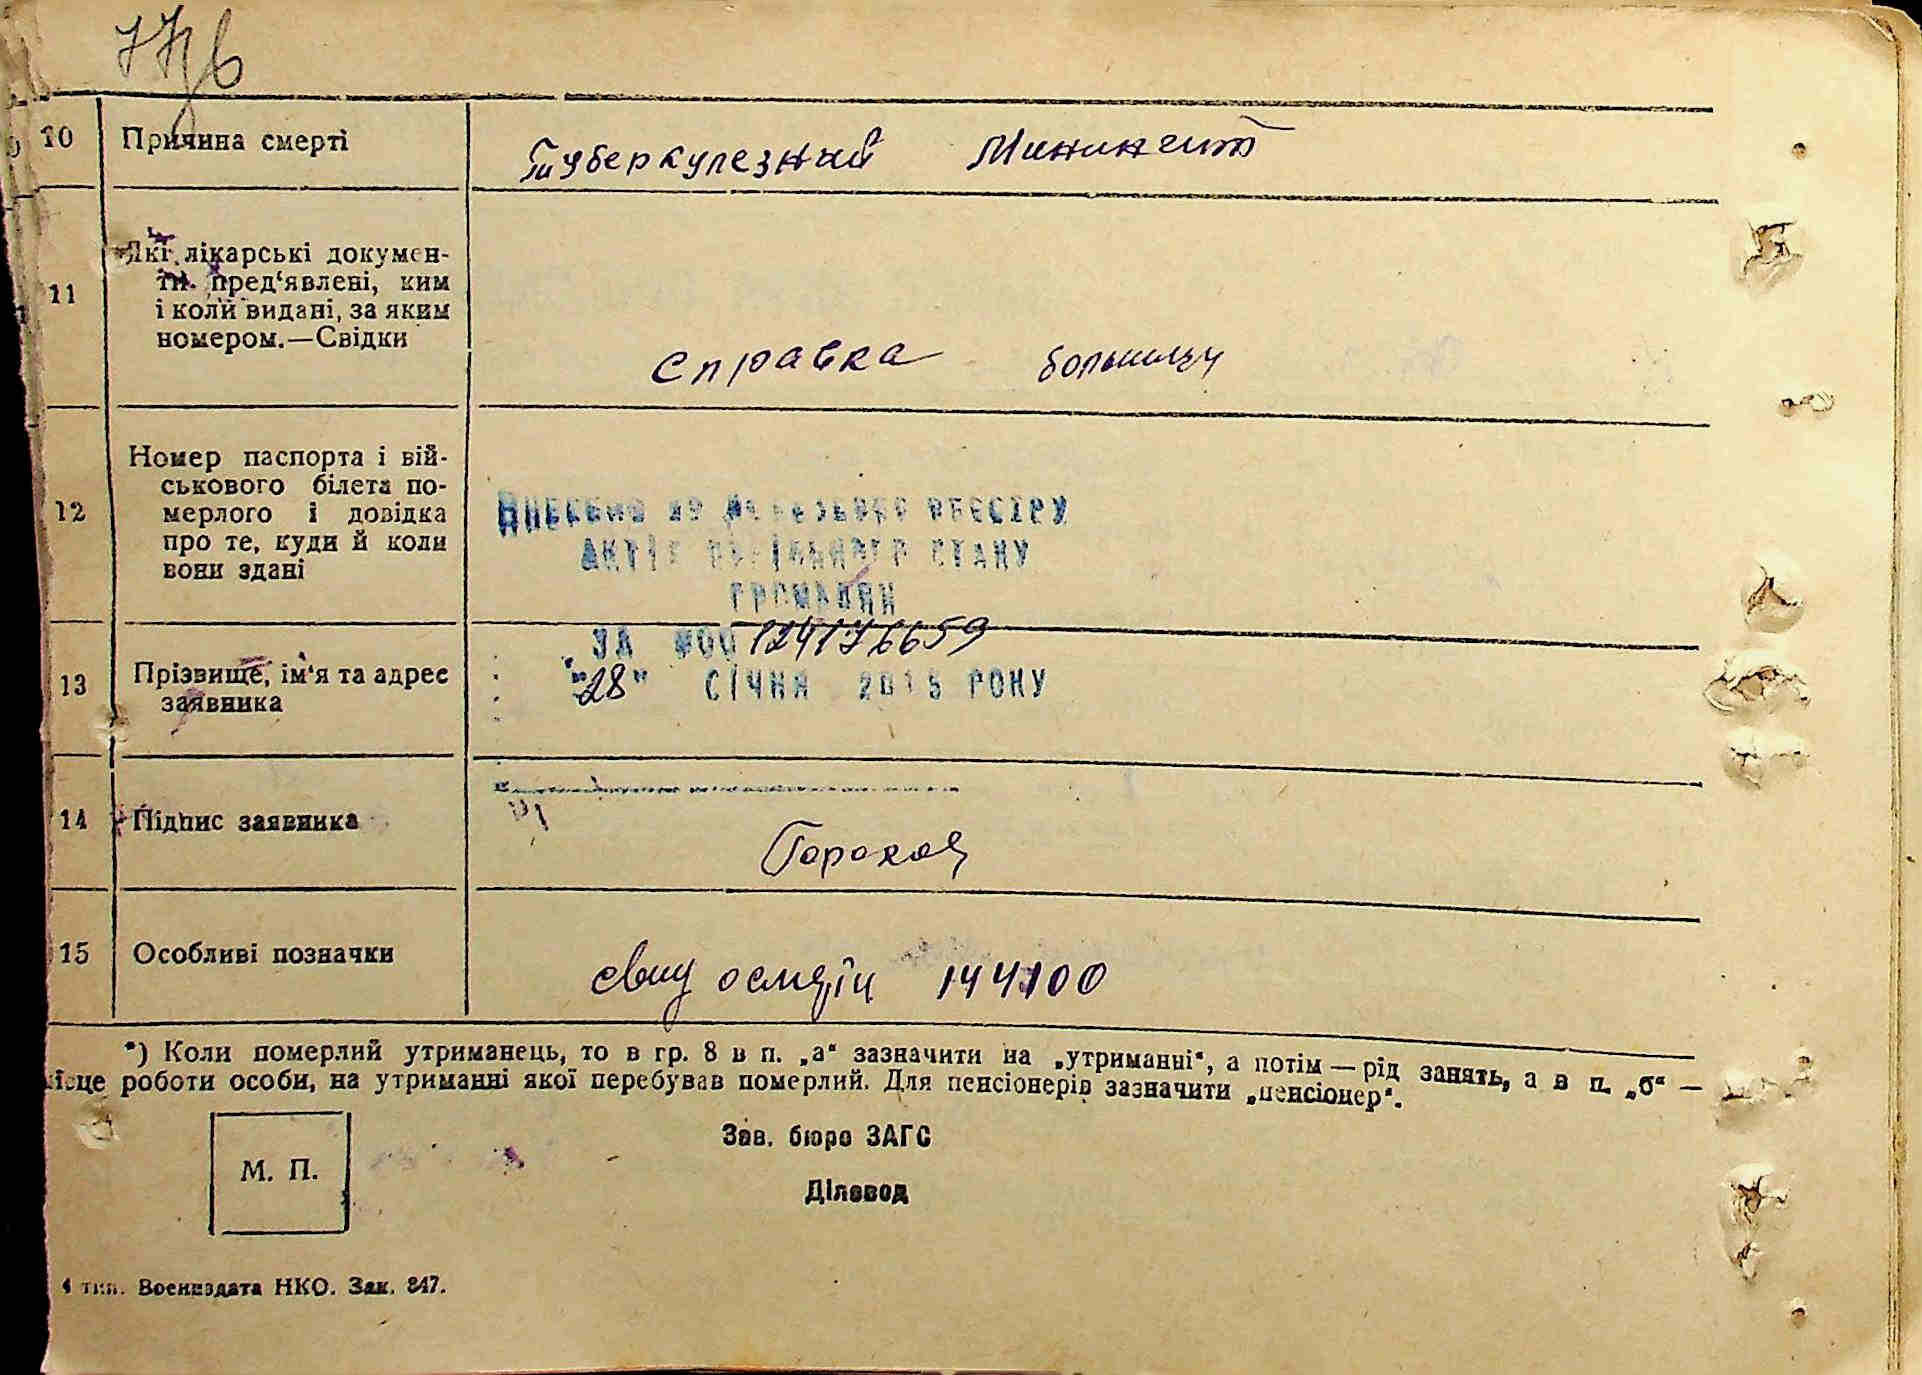 10 Причина смерті Туберкулезний Минингит
11 Які лікарські докумен-
ти пред‘явлені, ким
і коли видані, за яким
номером.—Свідки
Справка больницы
12 Номер паспорта і вій-
ськового білета по-
мерлого і довідка
про те, куди й коли
вони здані
Внесено до Державного реєстру
актів цивільного стану
громадян
ЗА №00124176659
13 Прізвище, ім‘я та адрес
заявника
"28" СІЧНЯ 2015 РОКУ
14 Підпис заявника
15 Особливі позначки 144100
*) Коли померлий утриманець, то в гр. 8 в п. „а“ зазначити на „утриманні“, а потім — рід занять, а в п. „б“ —
місце роботи особи, на утриманні якої перебував померлий. Для пенсіонерів зазначити „пенсіонер“.
Зав. бюро ЗАГС
М. П.
Діловод
4 тип. Воениздата НКО. Зак. 847.